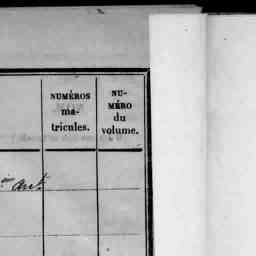 NUMÉROS
ma-
tricules.
NU-
MÉRO
du
volume.